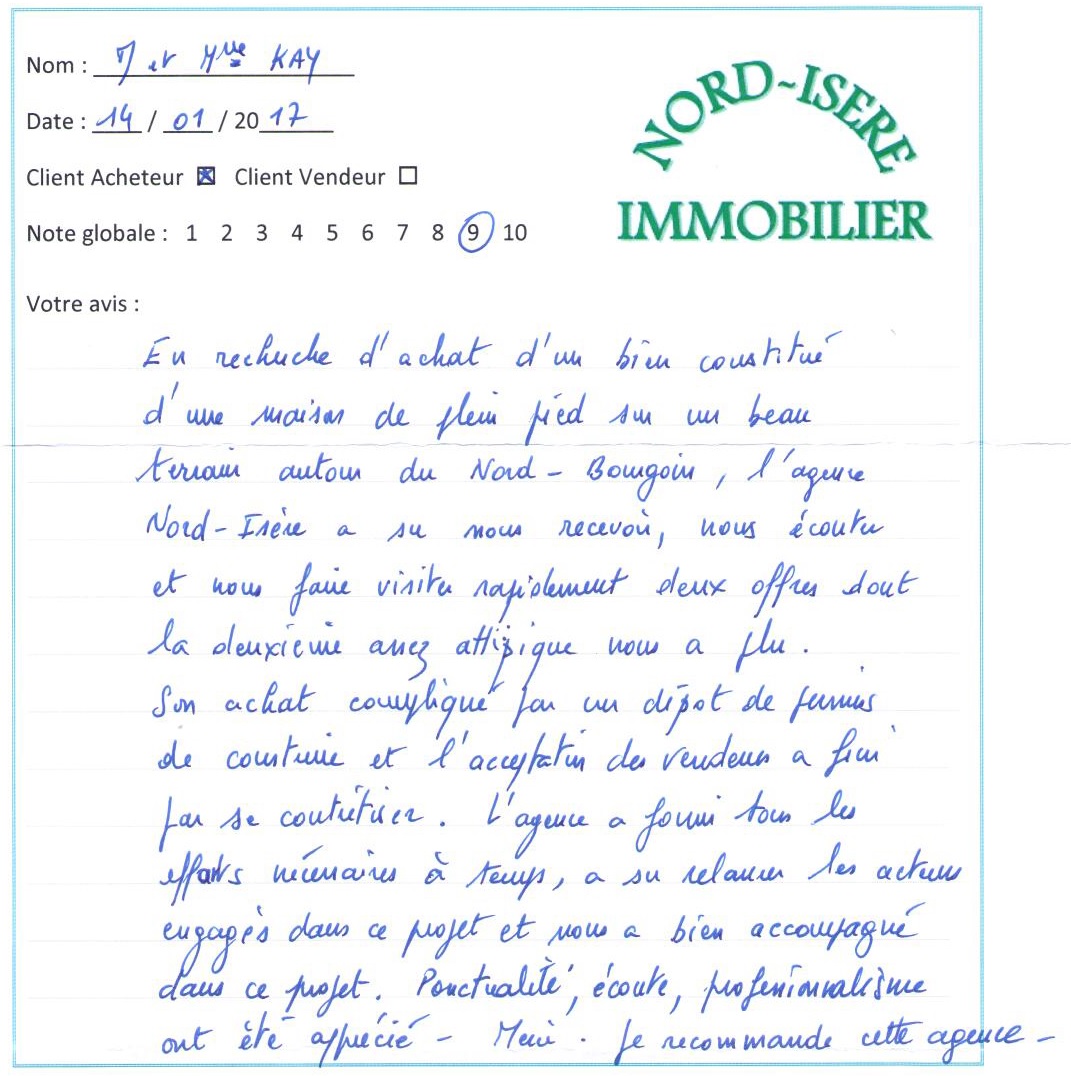 Nom : M et Mlle KAY
NORD-ISERE
IMMOBILIER
Date : 14 / 01 / 2017
Client Acheteur ☒ Client Vendeur ☐
Note globale : 1 2 3 4 5 6 7 8 9 10
Votre avis :
En recherche d'achat d'un bien constitué
d'une maison de plein pied sur un beau
terrain autour du Nord - Bourgoin, l'agence
Nord-Isère a su nous recevoir, nous écouter
et nous faire visiter rapidement deux offres dont
la deuxième assez attipique nous a plu.
Son achat compliqué par un dépot de permis
de construire et l'acceptation des vendeurs a fini
par se contrétiser. L'agence a fourni tous les
efforts nécessaires à temps, a su relancer les acteurs
engagés dans ce projet et nous a bien accompagné
dans ce projet. Ponctualité, écoute, professionnalisme
ont été apprécié - Merci. Je recommande cette agence -